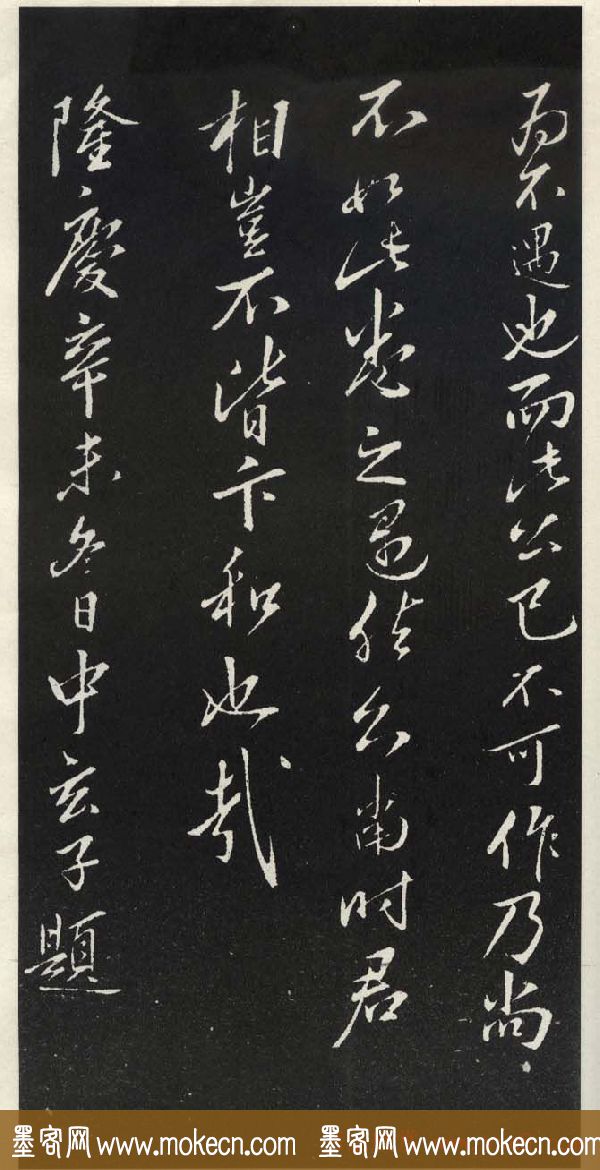 为不遇也而此公已不可作乃尚
不如此卷之遇然公当时君
相岂不皆卞和也哉
隆慶辛未冬日中玄子題
墨客网 www.mokecn.com 墨客网 www.mokecn.com